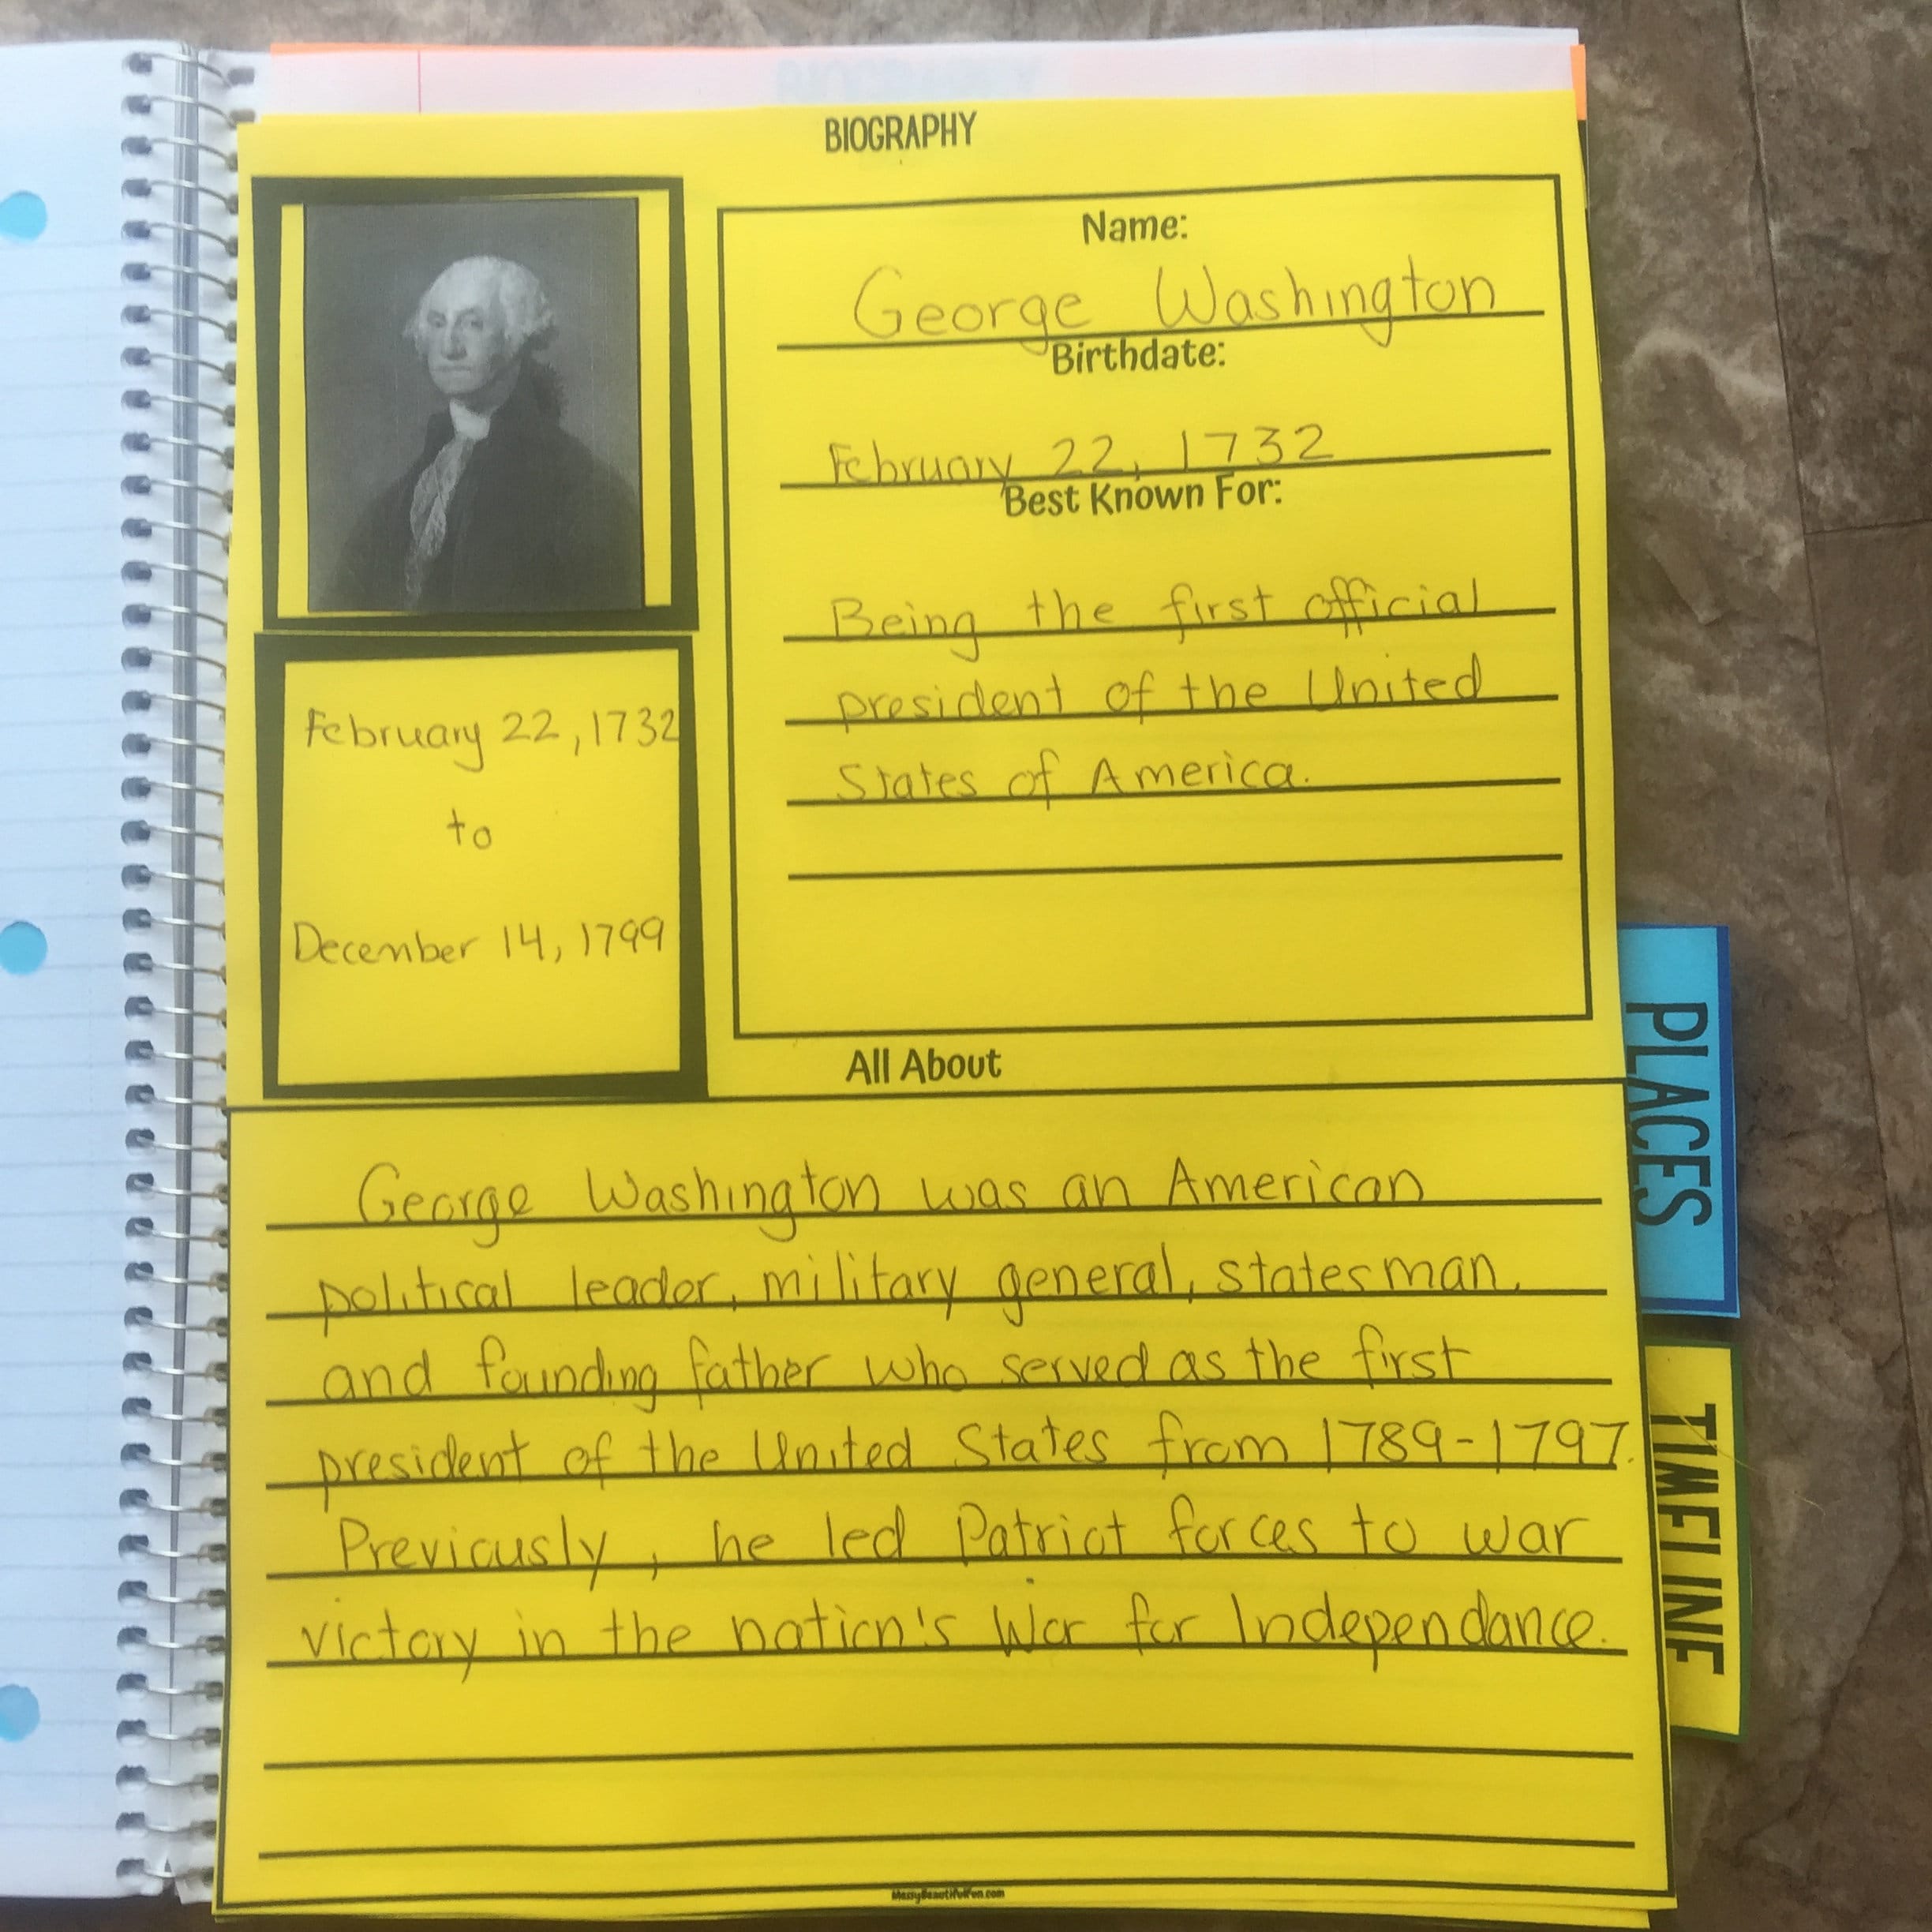 BIOGRAPHY
Name:
George Washington
Birthdate:
February 22, 1732
Best Known For:
Being the first official
president of the United
States of America.
February 22, 1732
to
December 14, 1799
All About
George Washington was an American
political leader, military general, statesman,
and founding father who served as the first
president of the United States from 1789-1797.
Previously, he led Patriot forces to war
victory in the nation's War for Independance.
MessyBeautifulFun.com
PLACES
TIMELINE